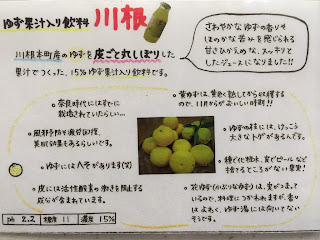 ゆず果汁入り飲料 川根
川根本町産のゆずを皮ごと丸しぼりした
果汁でつくった、15%ゆず果汁入り飲料です。
さわやかなゆずの香りや
ほのかな苦みを感じられる
甘さひかえめな、スッキリと
したジュースになりました!!
・奈良時代にはすでに
栽培されていたらしい…
・風邪予防や疲労回復、
美肌効果もあるらしいです。
・ゆずにはヘそがあります(笑)
・皮には活性酸素の働きを阻止する
成分が含まれています。
・黄ゆずは、黄色く熟してから収穫する
ので、11月からがおいしい時期!!
・ゆずの枝には、けっこう
大きなトゲがあるんです。
・種で化粧水、皮でピールなど
捨てるところがない果実!
・花ゆず(かぶりなゆず)は、実がつまって
いるので、料理につかわれますが、香り
はよわく、ゆず湯には向いてない
そうです。
pH 2.2 糖度 11 濃度 15%